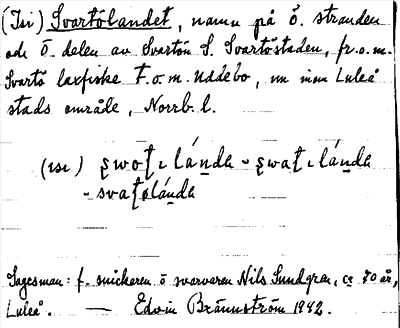 (Isi) Svartölandet, namn på ö. stranden
och ö. delen av Svartön S. Svartöstaden, fr.o.m.
Svartö laxfiske t.o.m. Uddebo, nu inom Luleå
stads område, Norrb. l.
(ısı) ʂwoʈɩlánda - ʂwaʈɩlánda
- svaʈølánda
Sagesman: f. snickaren o svarvaren Nils Sundgren, ca 70 år,
Luleå. — Edvin Brännström 1942.